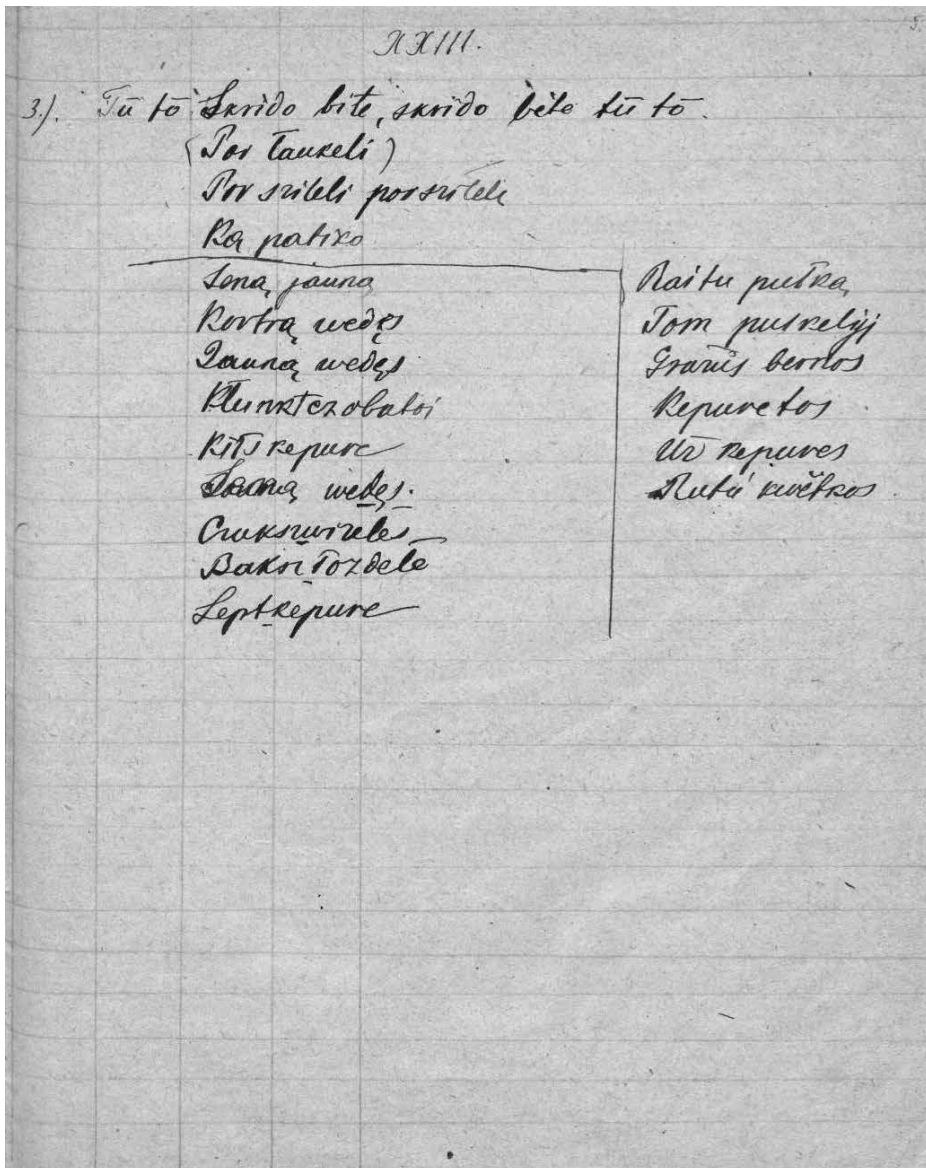 5.
XXIII.
3.). Tū tō Skrido bite, skrido bite tū tō.
(Por łaukeli)
Por szileli por szileli
Ką patiko
Seną jauną
Kortrą wedęs
Jauną wedęs
Klunkt czobatoi
Kits kepure
wedęs.
Czuksz wizeles
Baksz łozdele
Lept kepure
Raitu pulką
Tom pulkelyj
Grażus bernos
Kepuretos
Uż kepures
Rutū kwėtkos